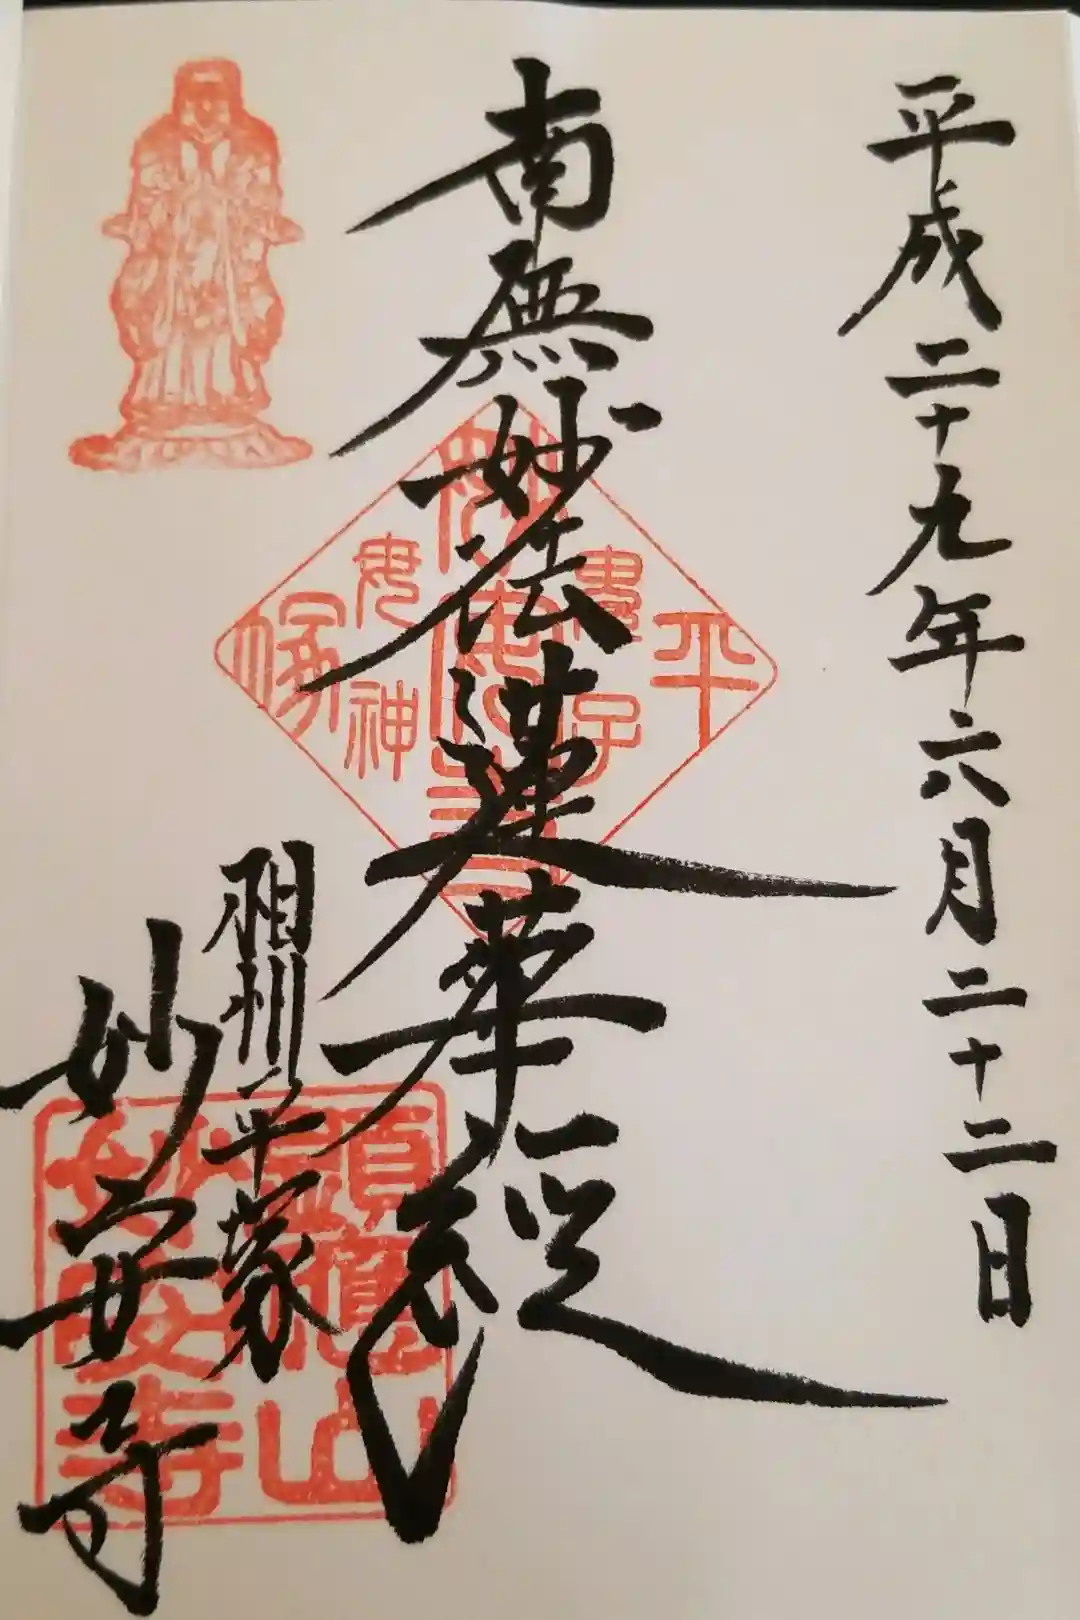 平成二十九年六月二十二日
南無妙法蓮華経
相州平塚
妙安寺
平
子
妙安寺
鬼
神
塚
山
妙安寺